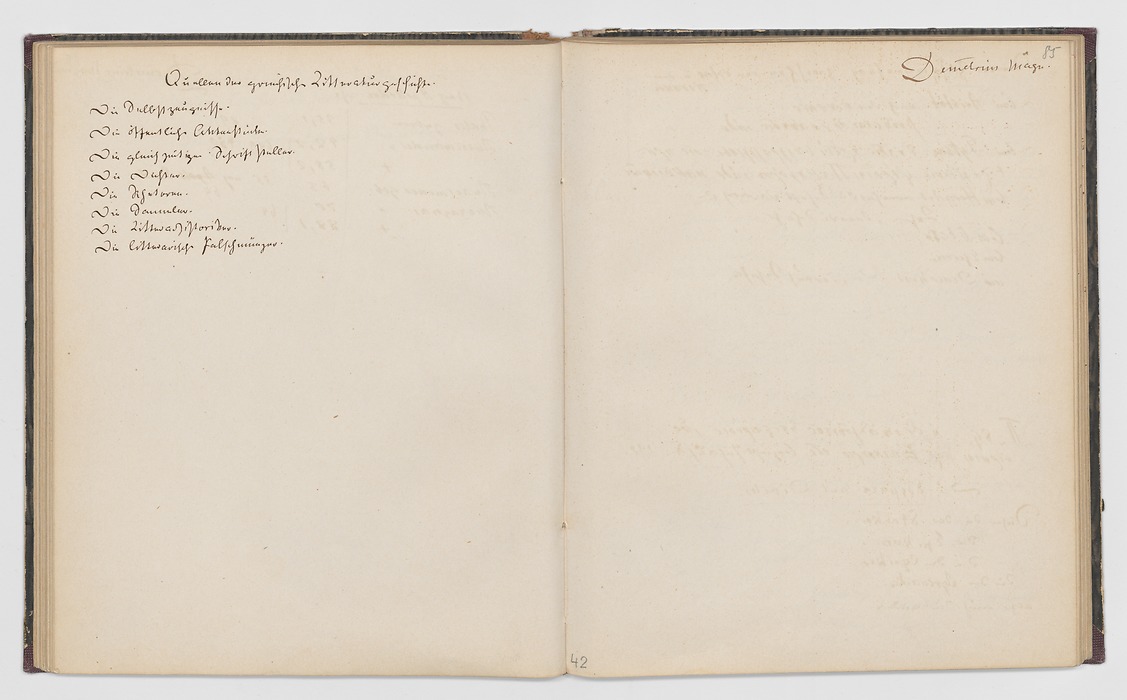 Quellen der griechische Litteraturgeschichte.
Die Selbstzeugnisse.
Die öffentliche Aktenstücke.
Die gleichzeitigen Schriftsteller.
Die Dichter.
Die Rhetoren.
Die Sammler.
Die Litterarhistoriker.
Die litterarische Falschmünzer.
85
Demetrius Magn.
42